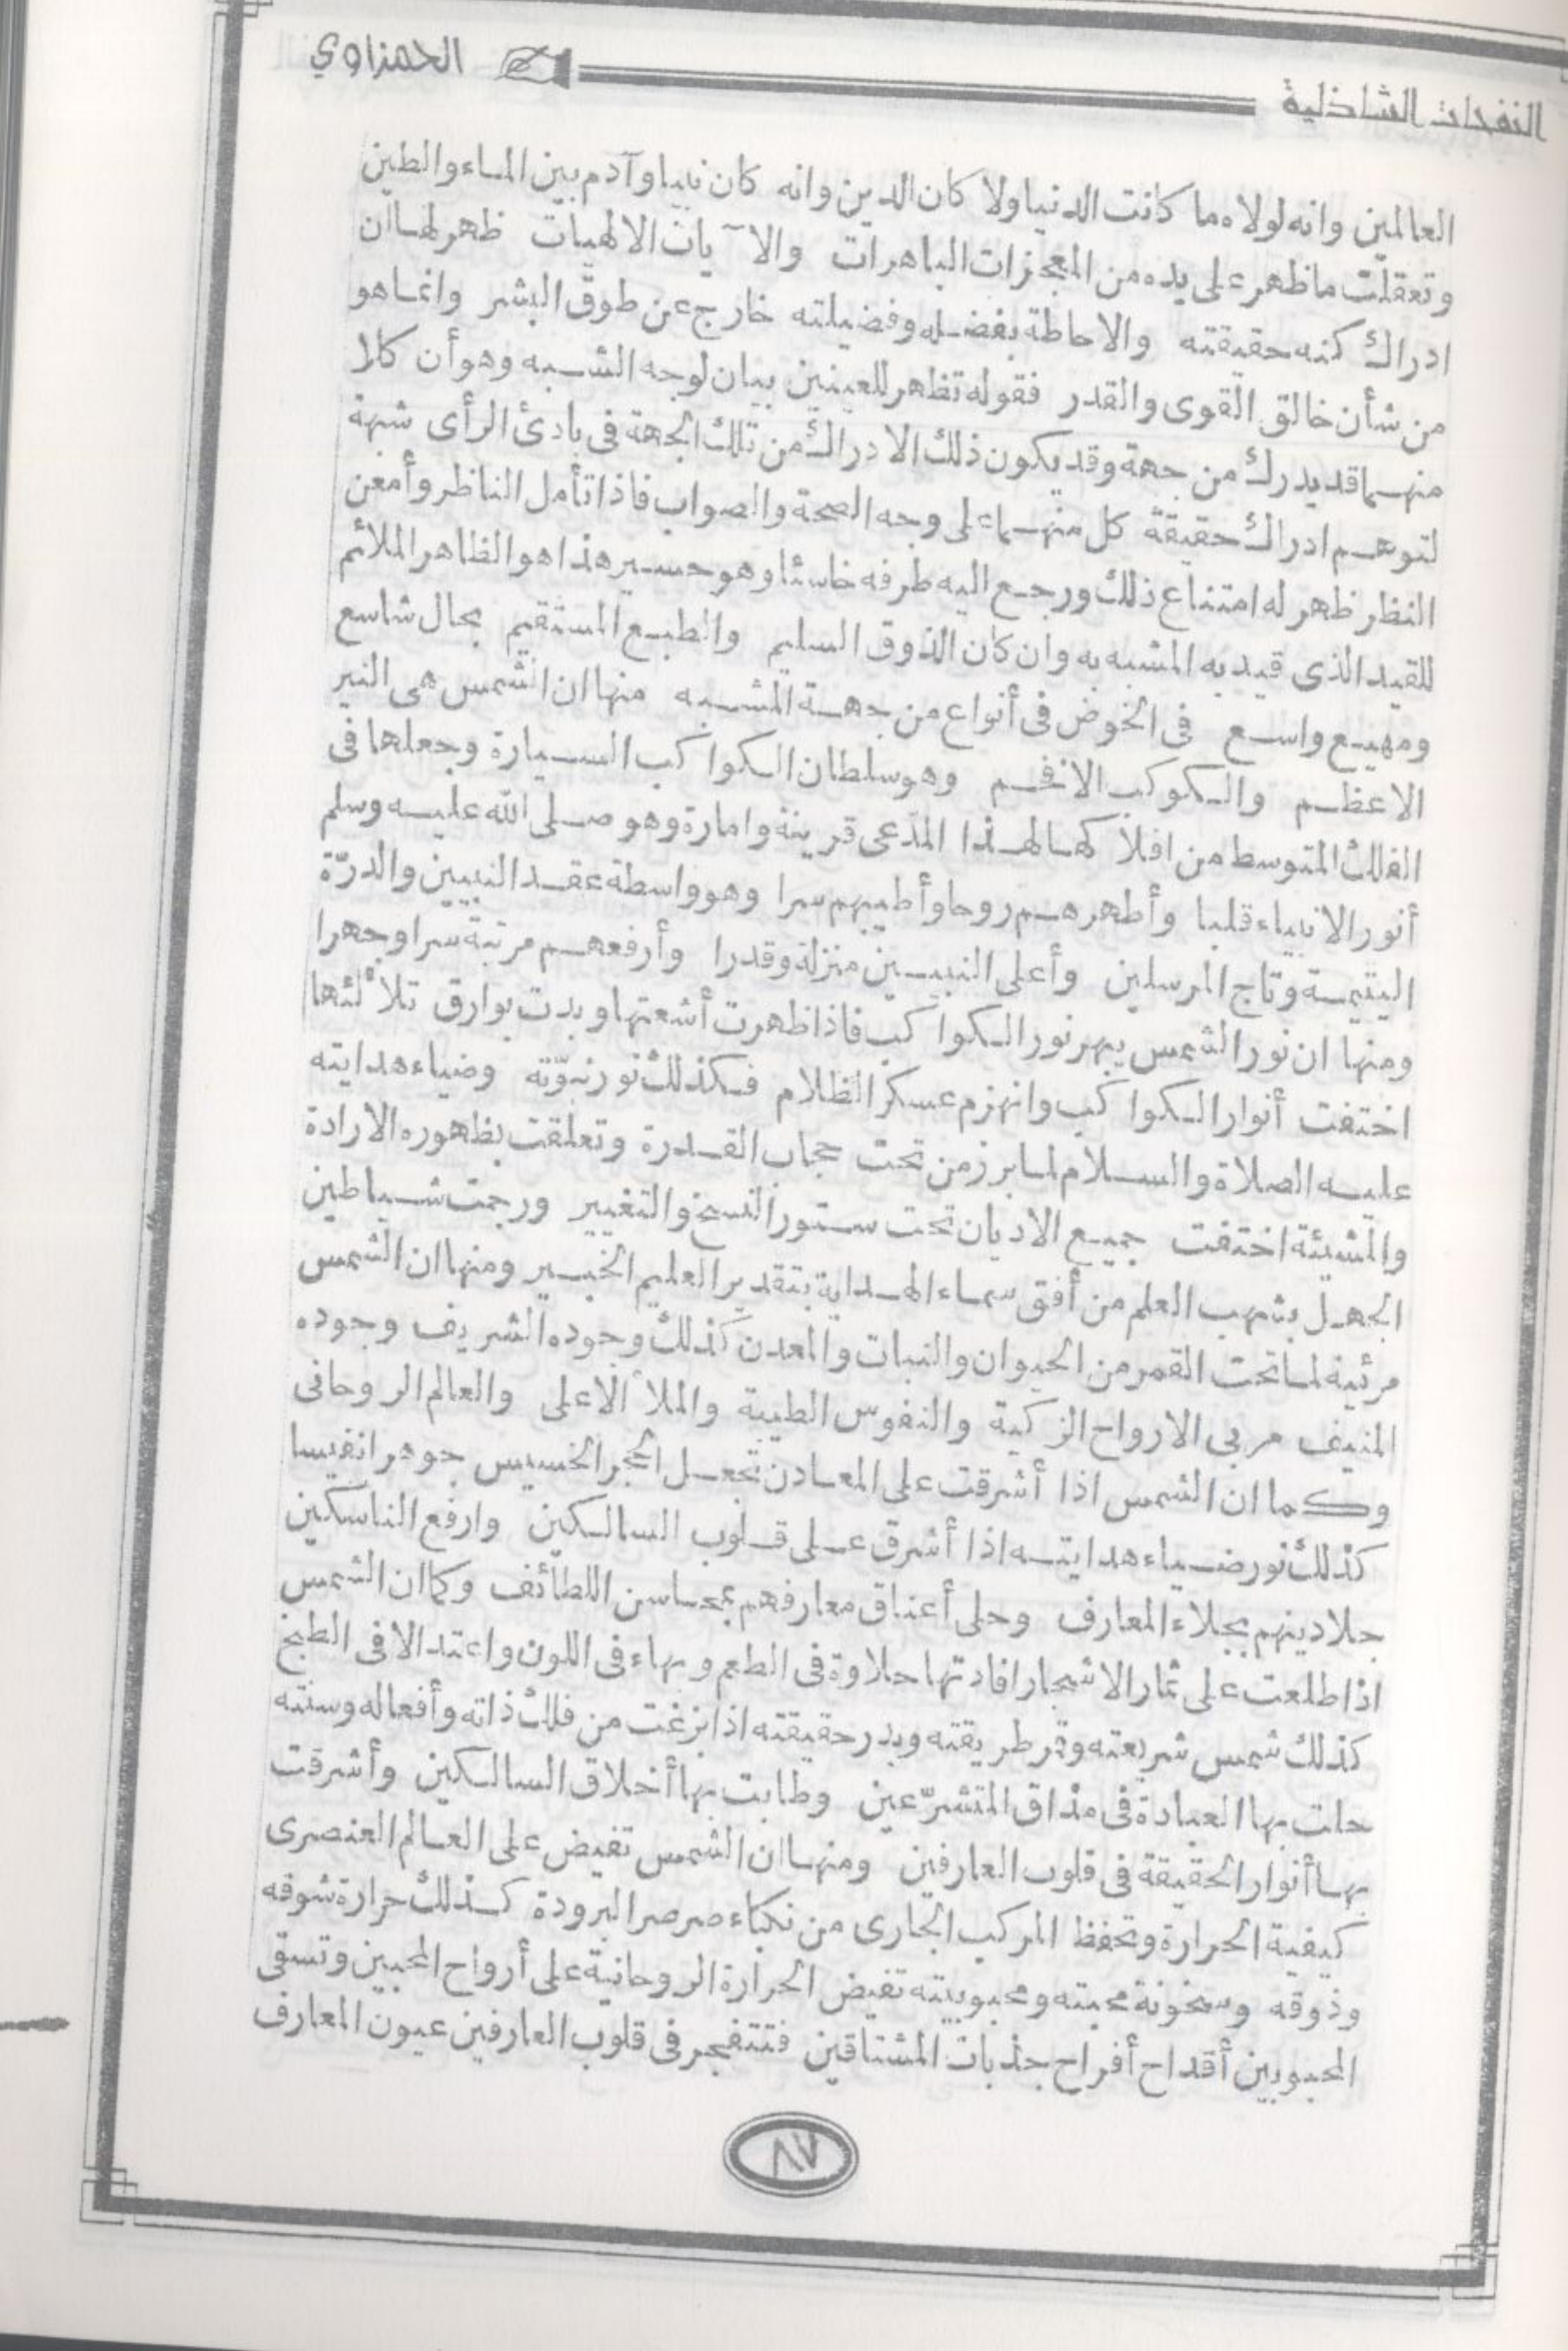 النفحات الشاذلية
الحمزاوي
العالمين وانه لولاه ما كانت الدنيا ولا كان الدين وانه كان نبيا وآدم بين الماء والطين
وتعقلت ما ظهر على يده من المعجزات الباهرات والآيات الالهيات ظهر لها ان
ادراك كنه حقيقته والاحاطة بفضله وفضيلته خارج عن طوق البشر وانما هو
من شأن خالق القوى والقدر فقوله تظهر للعينين بيان لوجه الشبه وهو أن كلا
منهما قد يدرك من جهة وقد يكون ذلك الادراك من تلك الجهة فى بادئ الرأى شبهة
لتوهم ادراك حقيقة كل منهما على وجه الصحة والصواب فاذا تأمل الناظر وأمعن
النظر ظهر له امتناع ذلك ورجع اليه طرفه خاسئا وهو حسير هذا هو الظاهر الملائم
للقيد الذى قيد به المشبه به وان كان الذوق السليم والطبع المستقيم بحال شاسع
ومهيع واسع فى الخوض فى أنواع من جهة الشبه منها ان الشمس هى النير
الاعظم والكوكب الافخم وهو سلطان الكواكب السيارة وجعلها فى
الفلك المتوسط من افلاكها لهذا المدعى قرينة وامارة وهو صلى الله عليه وسلم
أنور الانبياء قلبا وأطهرهم روحا وأطيبهم سرا وهو واسطة عقد النبيين والدرّة
اليتيمة وتاج المرسلين وأعلى النبيين منزلة وقدرا وأرفعهم مرتبة سرا وجهرا
ومنها ان نور الشمس يبهر نور الكواكب فاذا ظهرت أشعتها وبدت بوارق تلألئها
اختفت أنوار الكواكب وانهزم عسكر الظلام فكذلك نور نبوّته وضياء هدايته
عليه الصلاة والسلام لما برز من تحت حجاب القدرة وتعلقت بظهوره الارادة
والمشيئة اختفت جميع الاديان تحت ستور النسخ والتغيير ورجمت شياطين
الجهل بشهب العلم من أفق سماء الهداية بتقدير العليم الخبير ومنها ان الشمس
مرئية لما تحت القمر من الحيوان والنبات والمعدن كذلك وجوده الشريف وجوده
المنيف مربى الارواح الزكية والنفوس الطيبة والملأ الاعلى والعالم الروحانى
وكما ان الشمس اذا أشرقت على المعادن تجعل الحجر الخسيس جوهرا نفيسا
كذلك نور ضياء هدايته اذا أشرق على قلوب السالكين وارفع الناسكين
جلا دينهم بجلاء المعارف وحلى أعناق معارفهم بمحاسن اللطائف وكما ان الشمس
اذا طلعت على ثمار الاشجار افادتها حلاوة فى الطعم وبهاء فى اللون واعتدالا فى الطبخ
كذلك شمس شريعته وقمر طريقته وبدر حقيقته اذا بزغت من فلك ذاته وأفعاله وسنته
حلت بها العبادة فى مذاق المتشرّعين وطابت بها أخلاق السالكين وأشرقت
بها أنوار الحقيقة فى قلوب العارفين ومنها ان الشمس تفيض على العالم العنصرى
كيفية الحرارة وتحفظ المركب الجارى من نكباء صرصر البرودة كذلك حرارة شوقه
وذوقه وسخونة محبته ومحبوبيته تفيض الحرارة الروحانية على أرواح المحبين وتسقى
المحبوبين أقداح أفراح جذبات المشتاقين فتتفجر فى قلوب العارفين عيون المعارف
٨٧